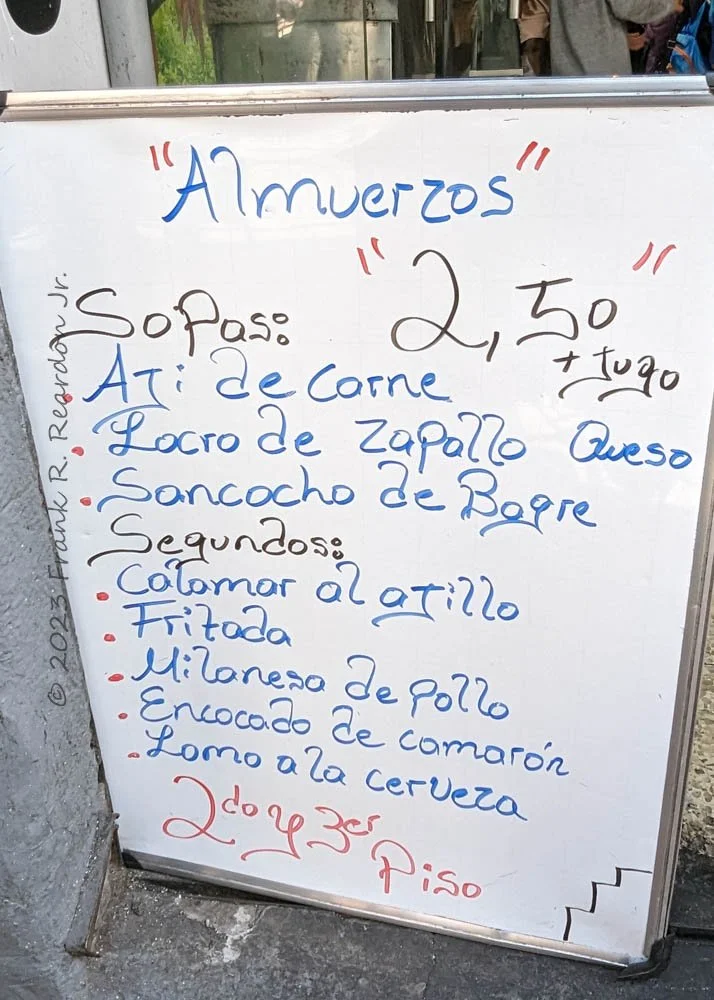 "Almuerzos"
"2,50"
+ Jugo
Sopas:
. Aji de Carne
. Locro de Zapallo Queso
. Sancocho de Bagre
Segundos:
. Calamar al ajillo
. Fritada
. Milanesa de pollo
. Encocado de camarón
. Lomo a la cerveza
2do y 3er Piso
© 2023 Frank R. Reardon Jr.